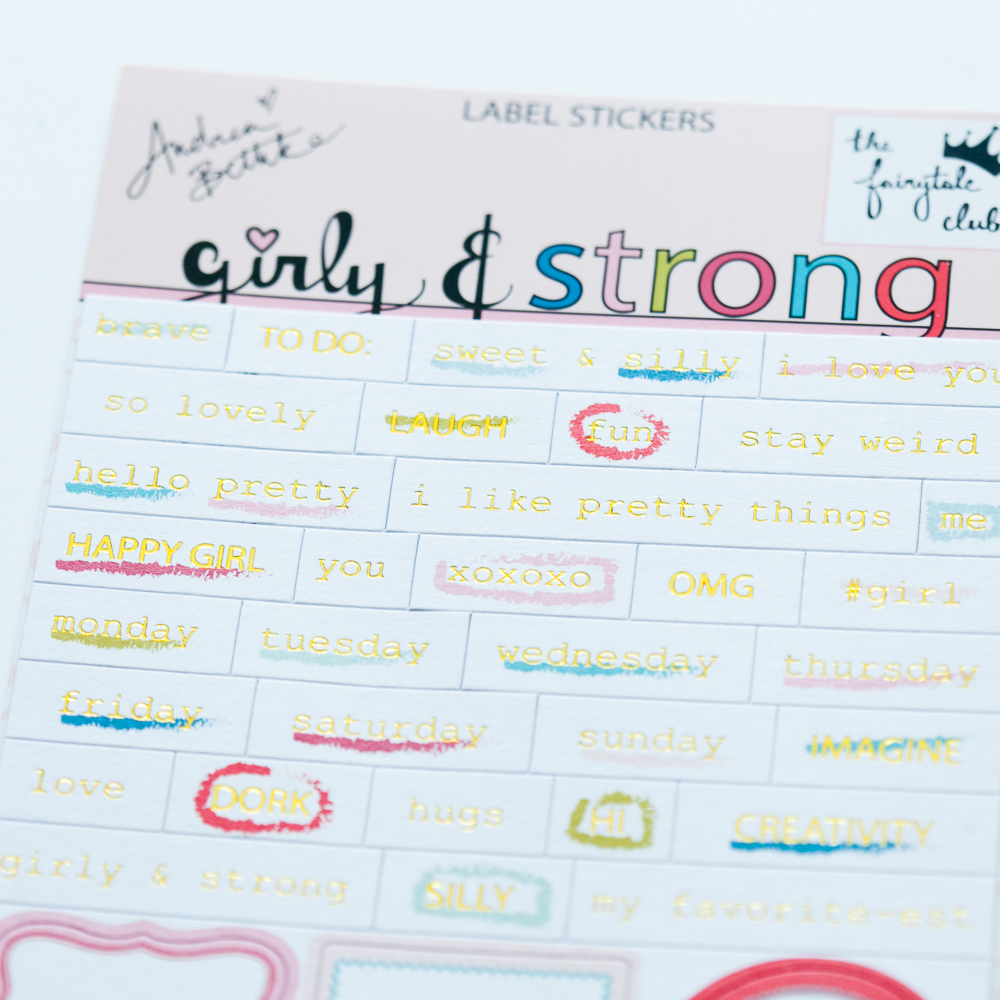 Andrea
LABEL STICKERS
the
fairytale
club
girly & strong
brave TO DO: sweet & silly i love you
so lovely LAUGH fun stay weird
hello pretty i like pretty things me
HAPPY GIRL you xoxoxo OMG #girl
monday tuesday wednesday thursday
friday saturday sunday IMAGINE
love DORK hugs HI CREATIVITY
girly & strong SILLY my favorite-est